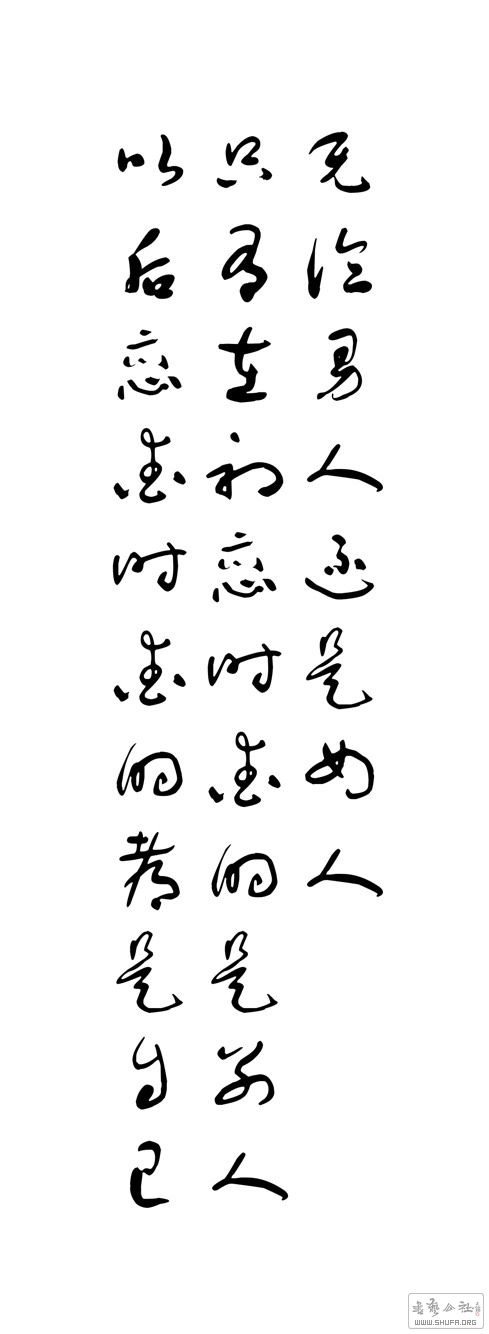 无论男人还是女人
只有在初恋时恋的是别人
以后恋恋时恋的都是自己
WWW.SHUFA.ORG